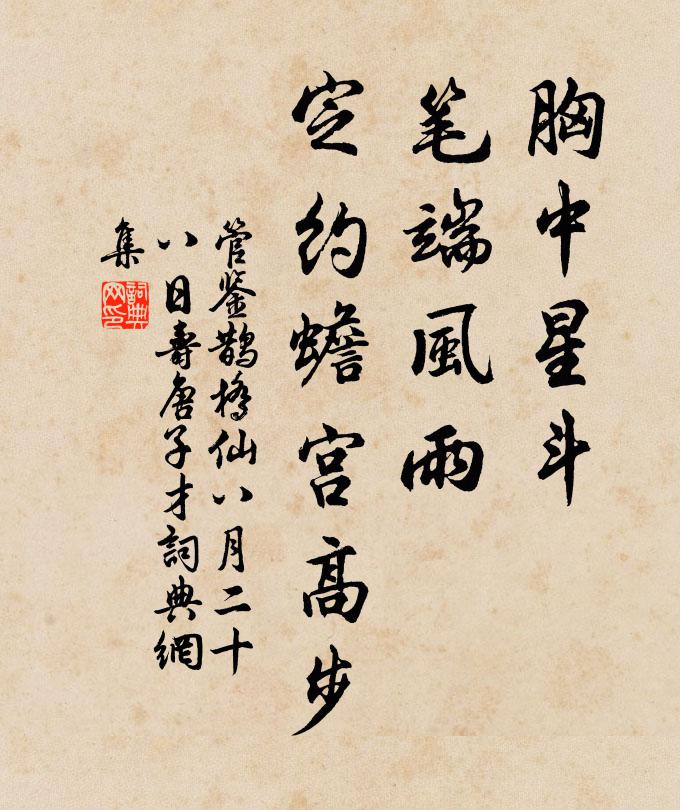 胸中星斗
笔端風雨
定约蟾宫高步
管鉴鹊橋仙八月二十
八日壽唐子才詞典網
集
詞典
网印